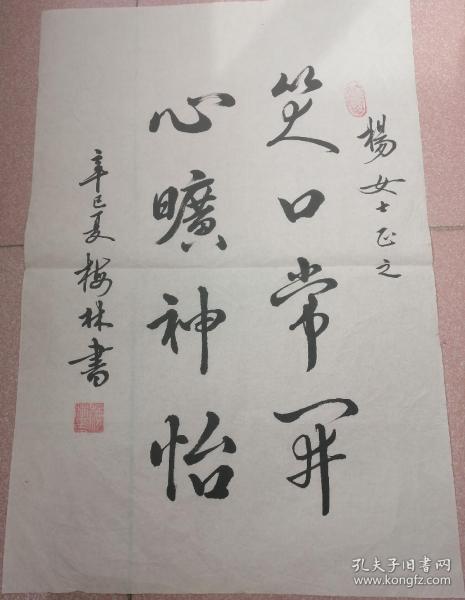 楊女士正之
笑口常開
心曠神怡
辛巳夏梅林書
孔夫子旧書网
www.kongfz.com